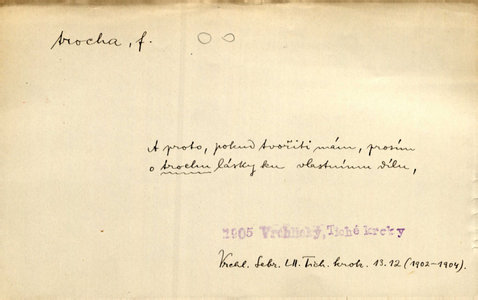 trocha, f.
A proto, pokud tvořiti mám, prosím
o trochu lásky ku vlastnímu dílu,
1905 Vrchlický, Tiché kroky
Vrchl. Sebr. LII. Tich. krok. 13.12 (1902-1904).